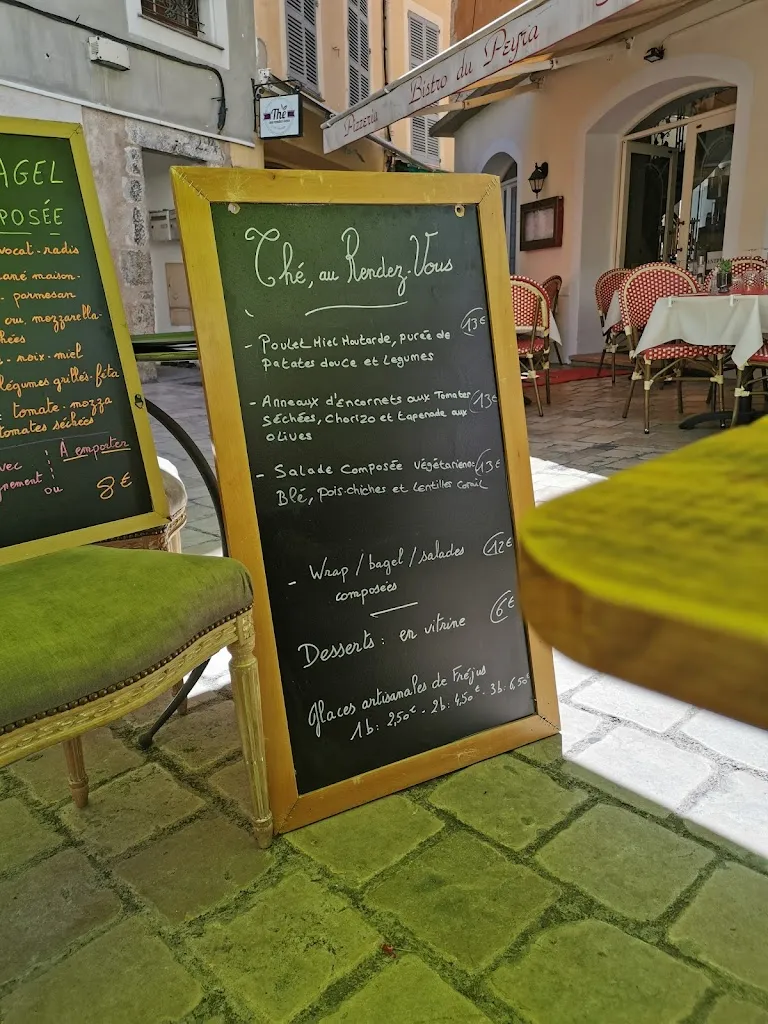 Pizzeria Bistro du Peyra
Thé
AGEL
POSÉE
vocat - radis
ané maison -
parmesan
cru, mozzarella -
chées
- noix - miel
légumes grillés - féta
tomate - mozza
tomates séchées
À emporter
vec
gnement ou
8€
Thé, au Rendez-Vous
- Poulet Miel Moutarde, purée de 13€
patates douce et Legumes
- Anneaux d'Encornets aux Tomates 13€
Séchées, Chorizo et tapenade aux
olives
- Salade Composée Végétarienne: 13€
Blé, pois-chiches et Lentilles Corail
- Wrap / bagel / salades 12€
composées
Desserts : en vitrine 6€
Glaces artisanales de Fréjus
1b: 2,50€ - 2b: 4,50€ - 3b: 6,50€